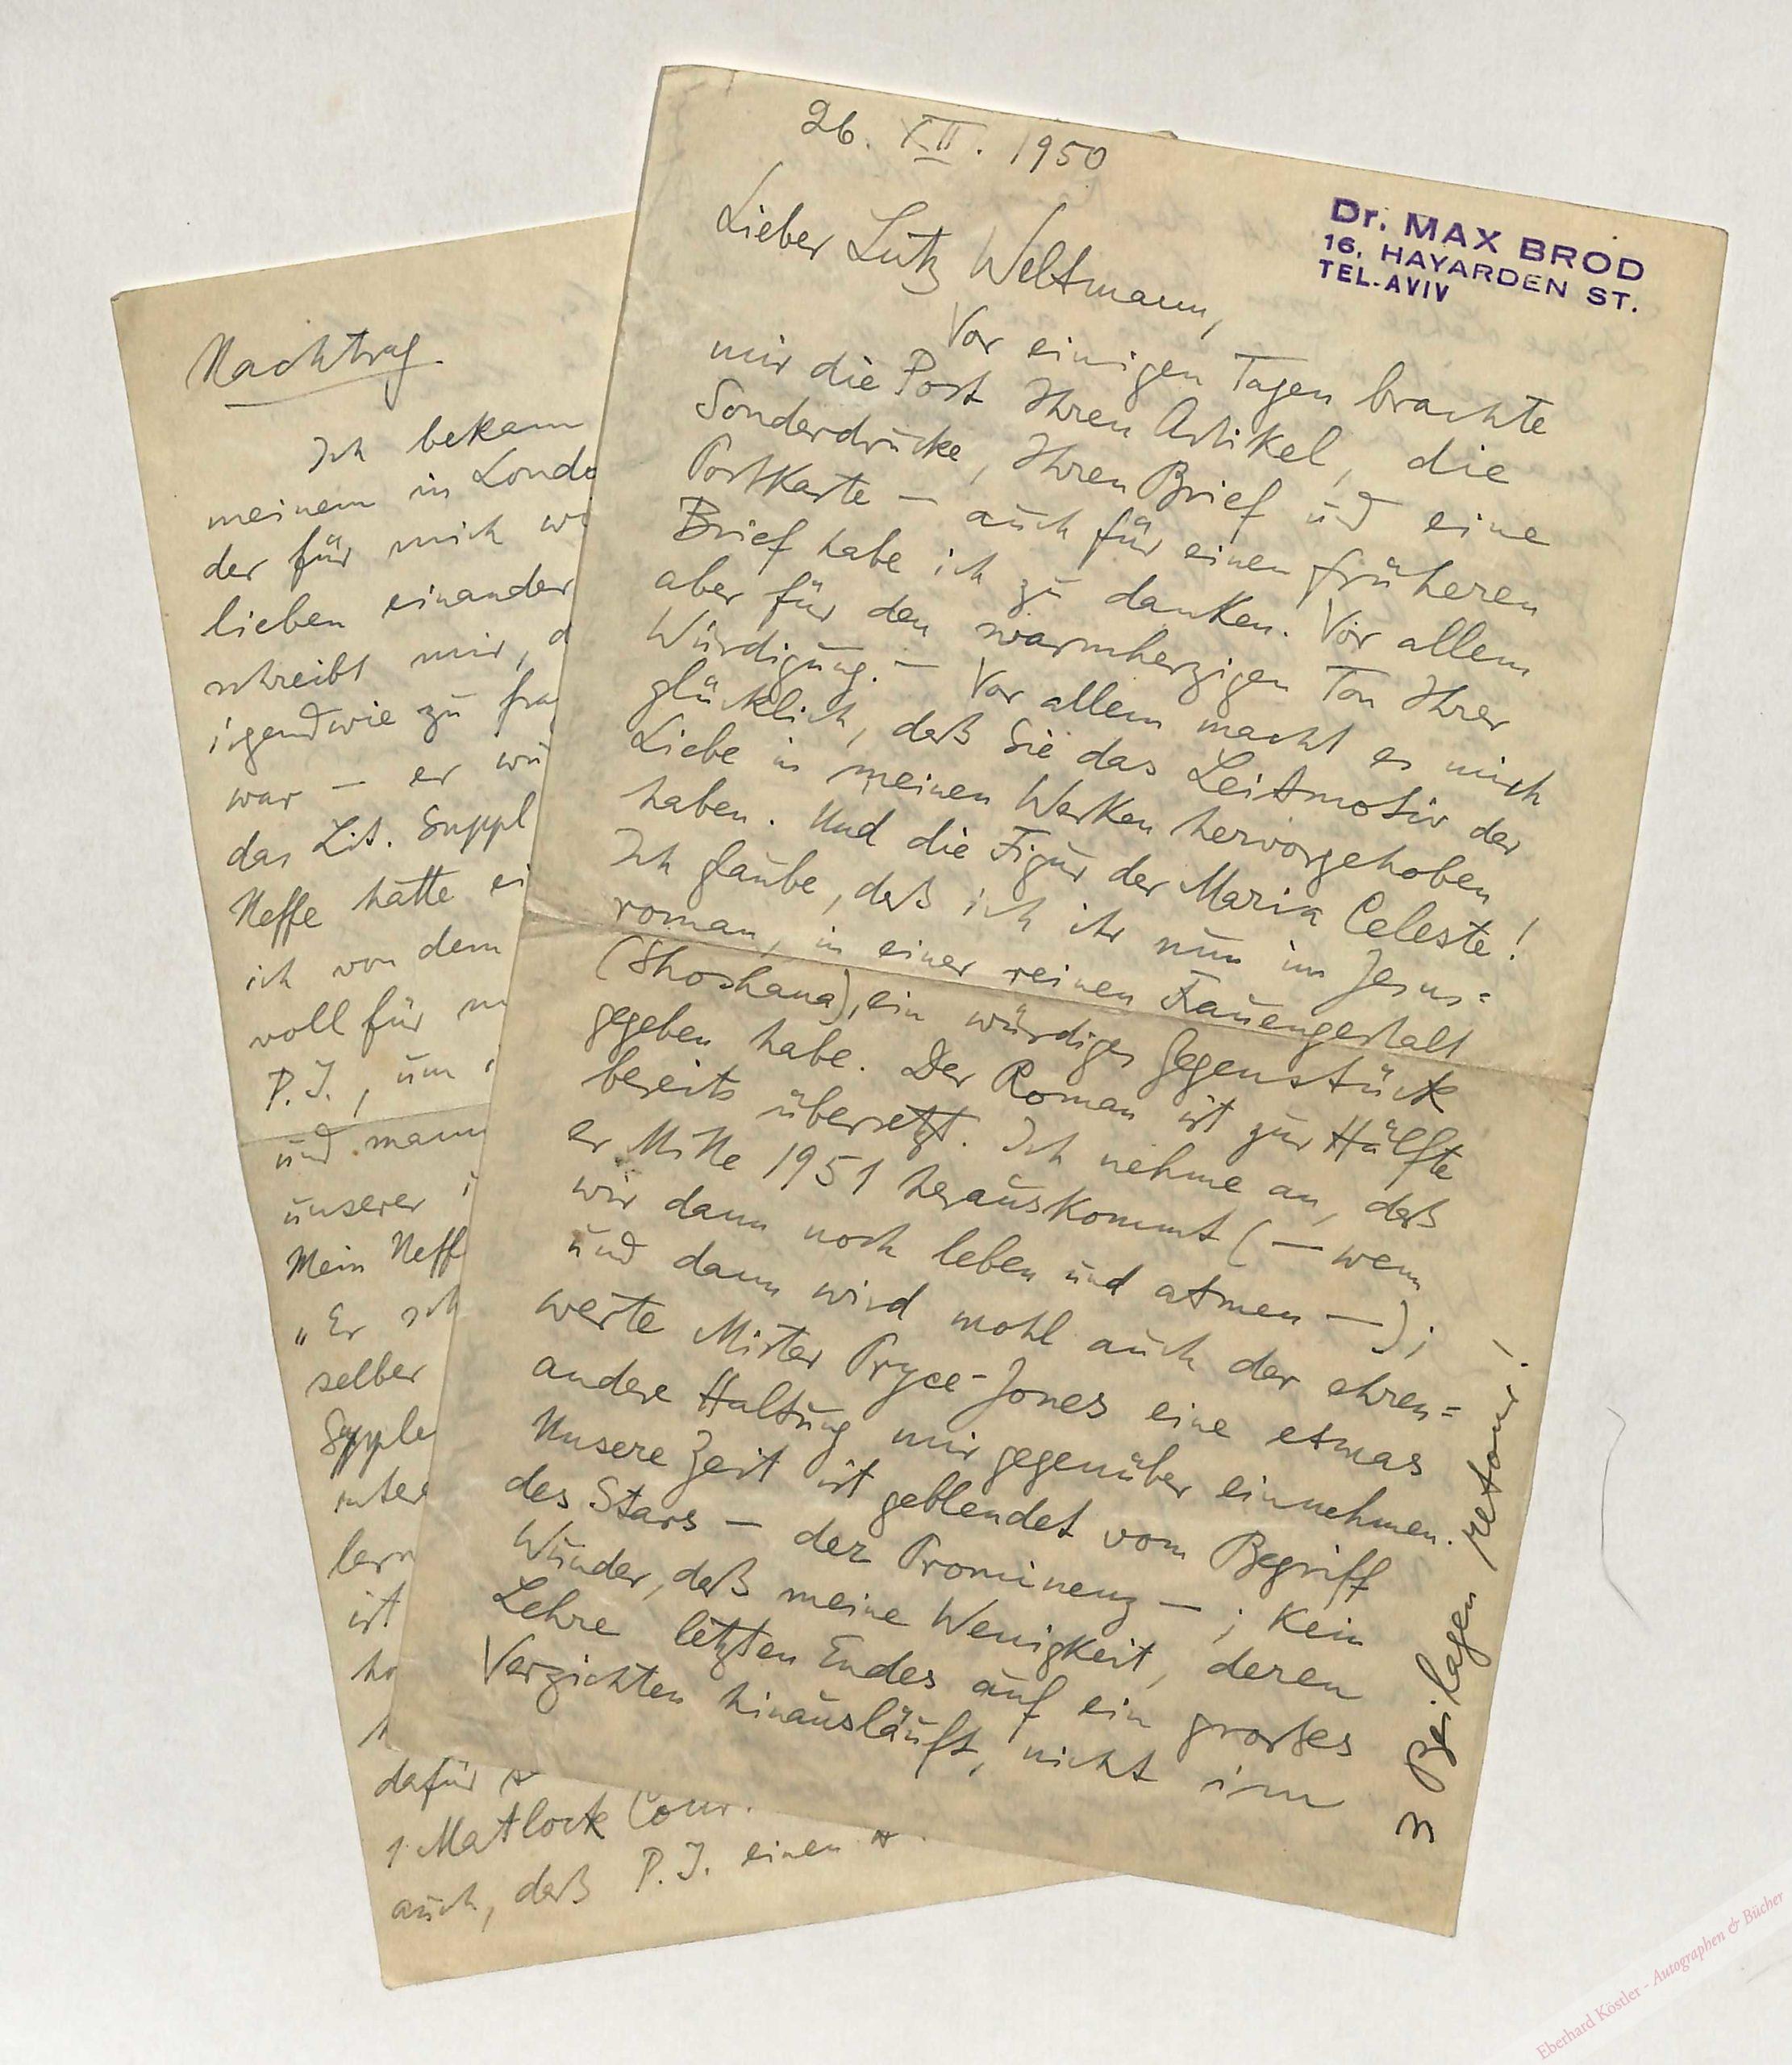 26. XII. 1950
Dr. MAX BROD
16, HAYARDEN ST.
TEL-AVIV
Lieber Lutz Weltmann,
Vor einigen Tagen brachte
mir die Post Ihren Artikel, die
Sonderdrucke, Ihren Brief und eine
Postkarte — auch für einen früheren
Brief habe ich zu danken. Vor allem
aber für den warmherzigen Ton Ihrer
Würdigung. — Vor allem macht es mich
glücklich, daß Sie das Leitmotiv der
Liebe in meinen Werken hervorgehoben
haben. Und die Figur der Maria Celeste!
Ich glaube, daß ich ihr nun im Jesus=
roman, in einer reinen Frauengestalt
(Shoshana), ein würdiges Gegenstück
gegeben habe. Der Roman ist zur Hälfte
bereits übersetzt. Ich nehme an, daß
er Mitte 1951 herauskommt (— wenn
wir dann noch leben und atmen —);
und dann wird wohl auch der ehren=
werte Mister Pryce-Jones eine etwas
andere Haltung mir gegenüber einnehmen.
Unsere Zeit ist geblendet vom Begriff
des Stars — der Prominenz — ; kein
Wunder, daß meine Wenigkeit, deren
Lehre letzten Endes auf ein großes
Verzichten hinausläuft, nicht im
3 Beilagen retour!
Nachtrag
Ich bekam
meinem in Londo
der für mich
lieben einander
schreibt mir, d
irgendwie zu fra
war — er wü
das Lit. Suppl
Neffe hätte ei
ich von dem
voll für
P.J., um
und mann
unserer
Mein Neff
„Er sch
selber
Supple
inter
lern
ist
ho
dafür
1 Matlock Cour.
auch, daß P.J. einen
Eberhard Köstler - Autographen & Bücher